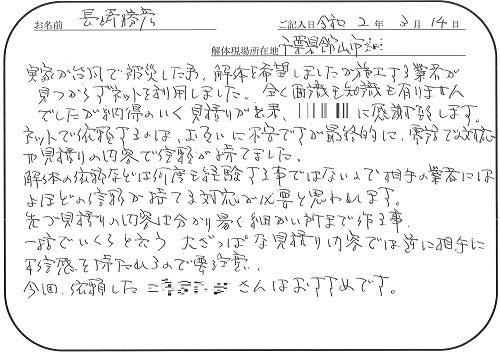 お名前 長崎勝彦 ご記入日 令和 2 年 3 月 14 日
解体現場所在地 千葉県館山市
実家が台風で被災した為、解体を希望しましたが施工する業者が
見つからずネットを利用しました。全く面識も知識も有りません
でしたが納得のいく見積りが出来、 に感謝致します。
ネットで依頼するのは、お互いに不安ですが最終的に、電話で対応
や見積りの内容で信頼が持てました。
解体の依頼などは何度も経験する事ではないので相手の業者には
よほどの信頼が持てる対応が必要と思われます。
先づ見積りの内容は分かり易く細かい所まで作る事、
一括でいくらと言う 大ざっぱな見積り内容では逆に相手に
不信感を持たれるので要注意。
今回、依頼した さんはおすすめです。